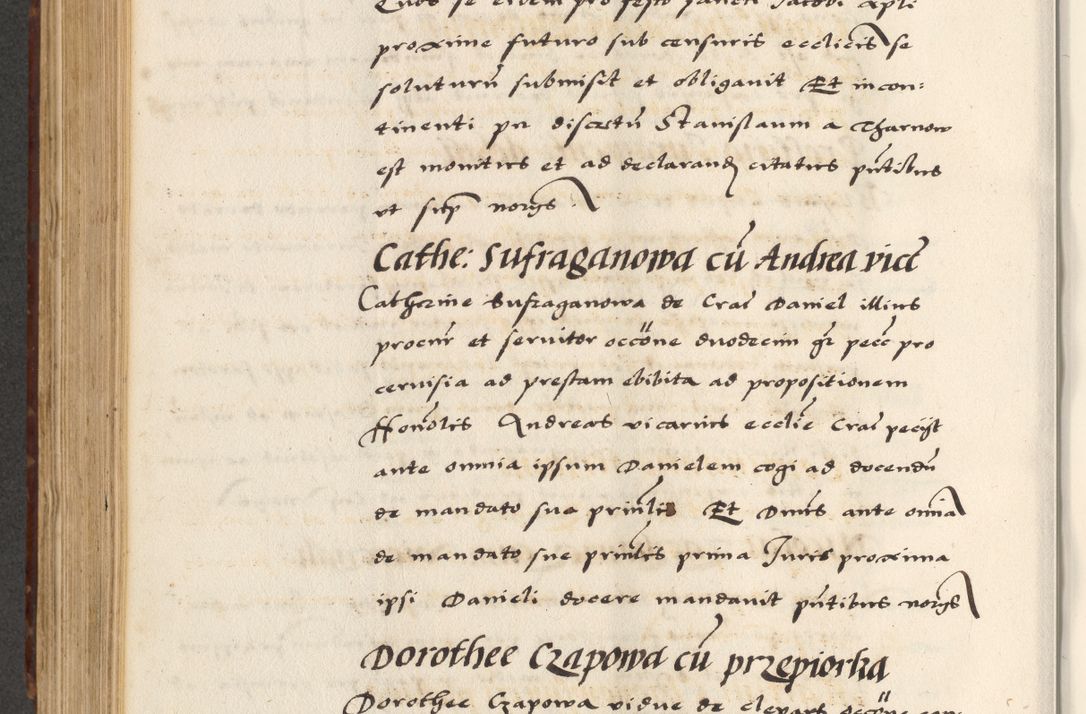 Quos se eidem pro festo sancti Jacobi apli
proxime futuro sub censuris ecclicis se
soluturū submisit et obligavit Et incon:
tinenti per discretū Stanislaum a Tharnow
est monitus et ad declarand citatus pn̄tibus
ut supra norgs
Cathe: Sufraganowa cū Andrea vice
Catherine Sufraganowa de Crac Daniel illius
procur et servitor occōne duodecim gr pecc pro
cervisia ad prestam ebibita ad propositionem
Honōlis Andreas vicarius ecclie Crac peciit
ante omnia ipsum Danielem cogi ad docendū
de mandato sue prin̄lis Et Dnus ante omnia
de mandato sue prin̄lis prima Juris proxima
ipsi Danieli docere mandavit pn̄tibus norgs
Dorothee Czapowa cū przepiorka
Dorothee Czapowa vidue de clepars occōne con: